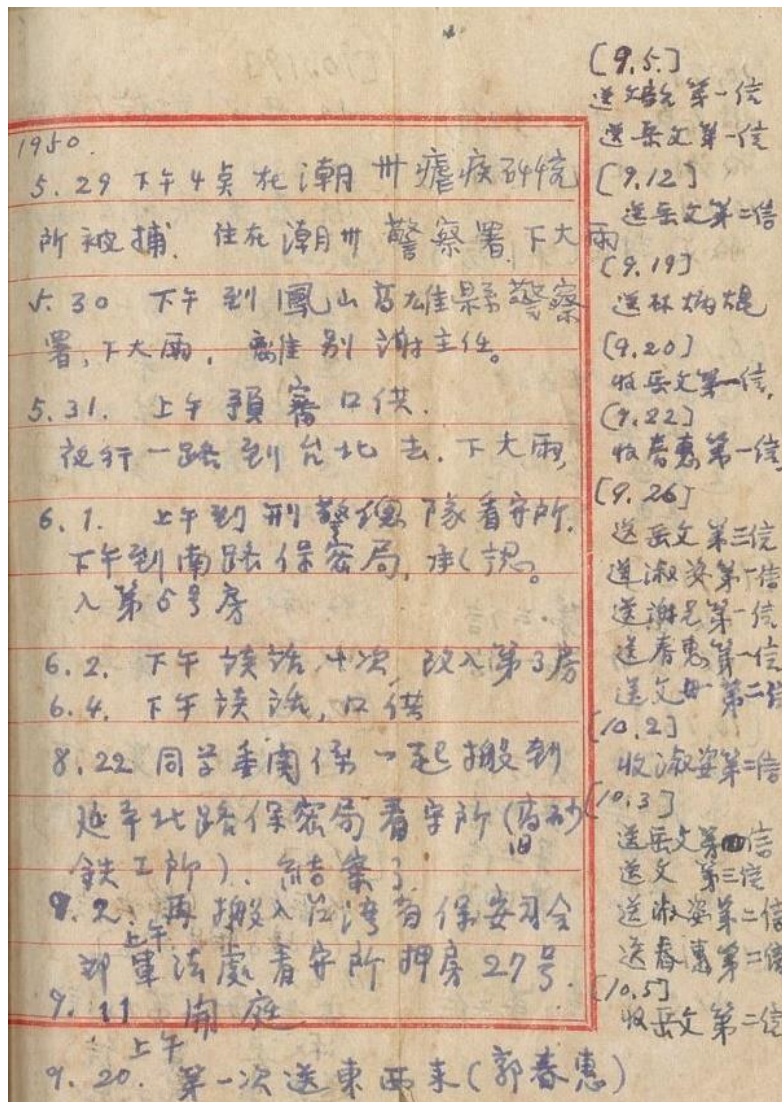 1950.
5.29 下午4点在潮州瘧疾研究
所被捕. 住在潮州警察署.下大雨
5.30 下午到鳳山高雄縣警察
署,下大雨. 離别謝主任。
5.31. 上午預審口供.
夜行一路到台北去.下大雨,
6.1. 上午到刑警總隊看守所.
下午到南路保密局,承認。
入第5号房
6.2. 下午談話 次 改入第3房
6.4. 下午談話,口供
8.22 同学 関係一起搬到
延平北路保密局看守所(旧 砂
鉄工所). 結案了
9.2. 上午 再搬入台湾省保安司令
部軍法處看守所押房27号.
9.11 開庭
9.20. 上午 第一次送東西来(郭春惠)
[9.5.]
送 第一信
送岳文第一信
[9.12]
送岳文第二信
[9.19]
送林炳焜
[9.20]
收岳文第一信,
[9.22]
收春惠第一信
[9.26]
送岳文第三信
送淑姿第一信
送謝兄第一信
送春惠第一信
送文 第二信
[10.2]
收淑姿第二信
[10.3]
送岳文第 信
送文 第三信
送淑姿第二信
送春惠第二信
[10.5]
收岳文第二信